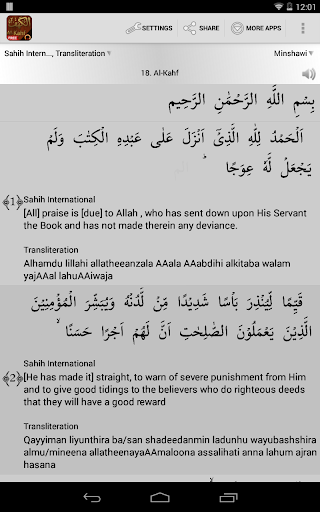 12:01
Al Kahf
FREE
SETTINGS
SHARE
MORE APPS
Sahih Intern..., Transliteration
Minshawi
18. Al-Kahf
بِسْمِ اللَّهِ الرَّحْمَٰنِ الرَّحِيمِ
اَلْحَمْدُ لِلّٰهِ الَّذِىْۤ اَنْزَلَ عَلٰى عَبْدِهِ الْكِتٰبَ وَلَمْ
يَجْعَلْ لَّهٗ عِوَجًا
Sahih International
(1)
[All] praise is [due] to Allah , who has sent down upon His Servant
the Book and has not made therein any deviance.
Transliteration
Alhamdu lillahi allatheeanzala AAala AAabdihi alkitaba walam
yajAAal lahuAAiwaja
قَيِّمًا لِّيُنْذِرَ بَاْسًا شَدِيْدًا مِّنْ لَّدُنْهُ وَيُبَشِّرَ الْمُؤْمِنِيْنَ
الَّذِيْنَ يَعْمَلُوْنَ الصّٰلِحٰتِ اَنَّ لَهُمْ اَجْرًا حَسَنًا ۙ
Sahih International
(2)
[He has made it] straight, to warn of severe punishment from Him
and to give good tidings to the believers who do righteous deeds
that they will have a good reward
Transliteration
Qayyiman liyunthira ba/san shadeedanmin ladunhu wayubashshira
almu/mineena allatheenayaAAmaloona assalihati anna lahum ajran
hasana